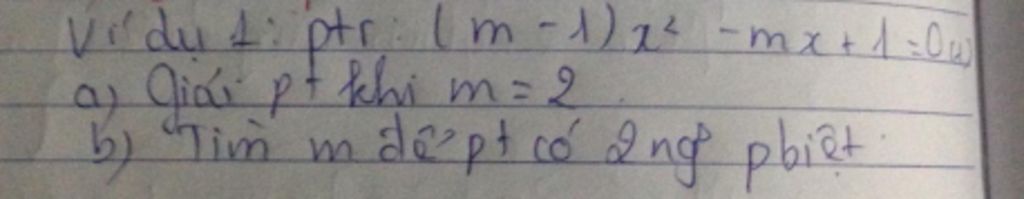 Ví dụ 1: ptr: (m - 1)x² - mx + 1 = 0 (1)
a) Giải pt khi m = 2.
b) Tìm m để pt có 2 ngº pbiệt.